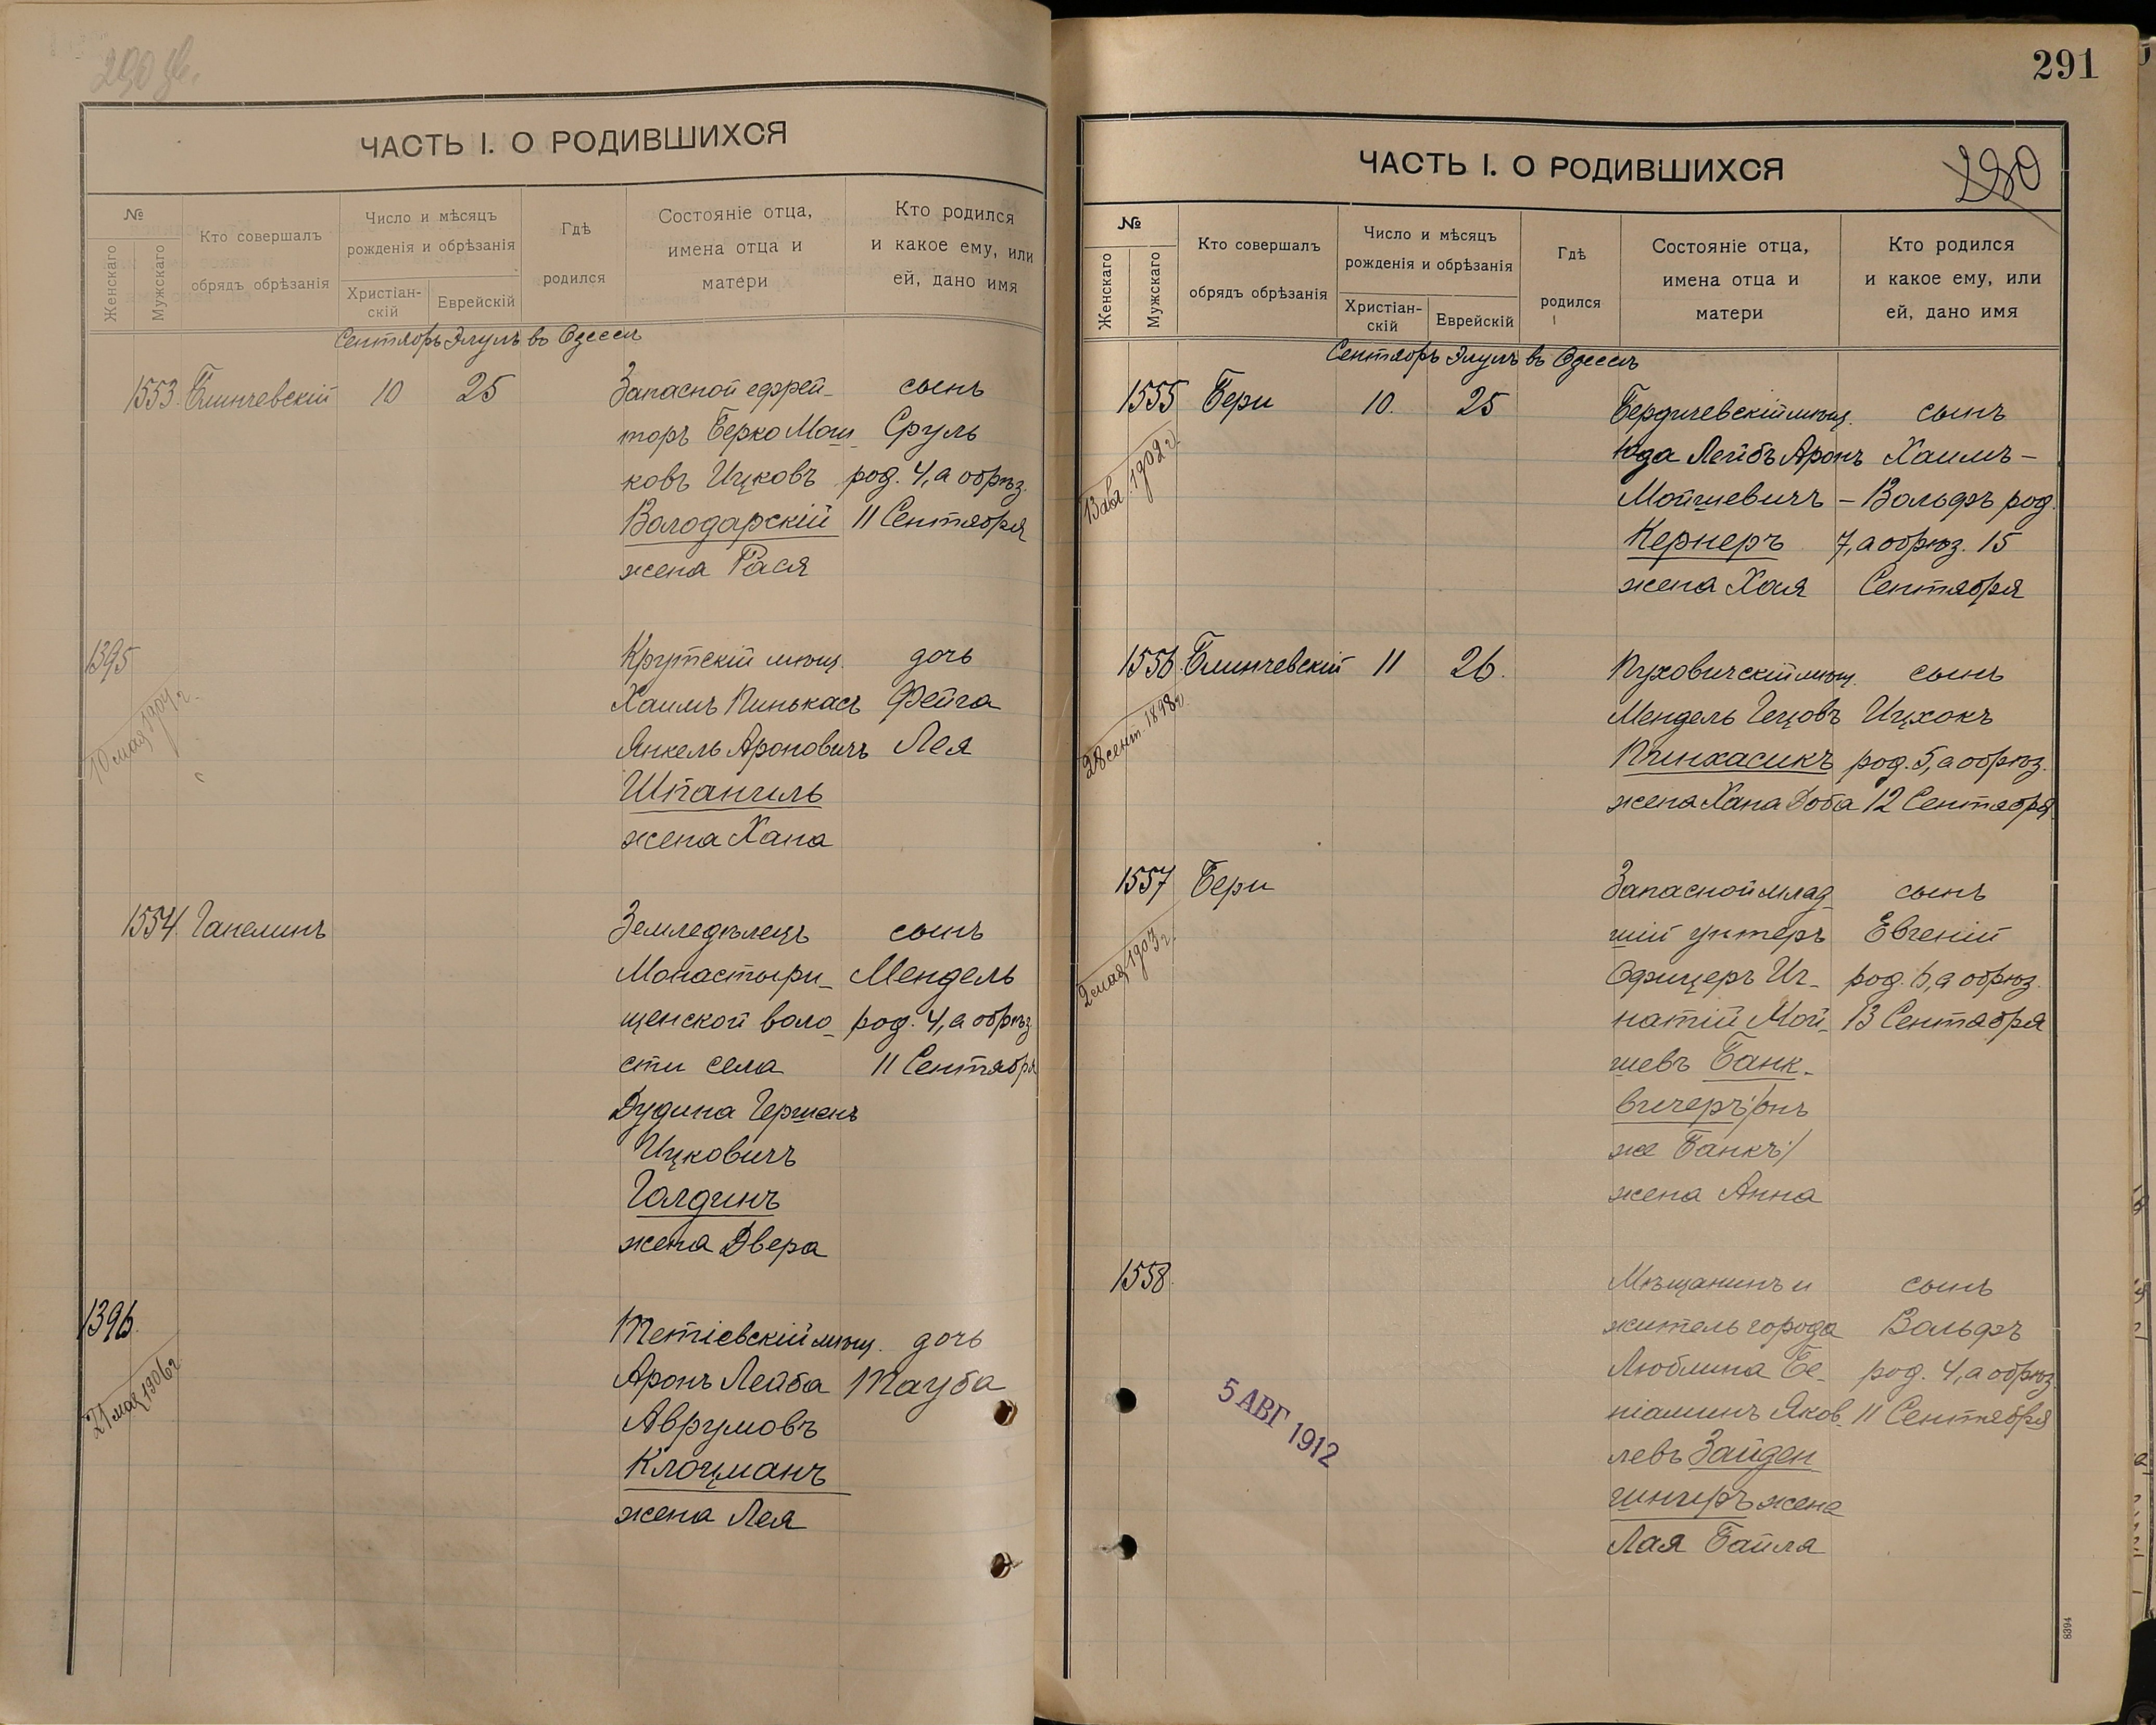 290 об.
ЧАСТЬ I. О РОДИВШИХСЯ
№
Женскаго
Мужскаго
Кто совершалъ
обрядъ обрѣзанія
Число и мѣсяцъ
рожденія и обрѣзанія
Христіан-
скій
Еврейскій
Гдѣ
родился
Состояніе отца,
имена отца и
матери
Кто родился
и какое ему, или
ей, дано имя
Сентябрь Элулъ въ Одессѣ
1553. Блинчевскій 10 25 Запасной ефрей- сынъ
торъ Берко Мош- Сруль
ковъ Ицковъ род. 4, а обрѣз.
Володарскій 11 Сентября
жена Рася
1395 Крутскій мѣщ. дочь
10 мая 1904 г.
Хаимъ Пинькасъ Фейга
Янкель Ароновичъ Лея
Шпангель
жена Хана
1554. Гапелинъ Земледѣлецъ сынъ
Монастыри- Мендель
щенской воло- род. 4, а обрѣз
сти села 11 Сентября
Дудина Гершенъ
Ицковичъ
Голдинъ
жена Двера
1396. Тетіевскій мѣщ. дочь
21 мая 1906 г.
Аронъ Лейба Тауба
Аврумовъ
Клоцманъ
жена Лея
291
ЧАСТЬ I. О РОДИВШИХСЯ
290
№
Женскаго
Мужскаго
Кто совершалъ
обрядъ обрѣзанія
Число и мѣсяцъ
рожденія и обрѣзанія
Христіан-
скій
Еврейскій
Гдѣ
родился
Состояніе отца,
имена отца и
матери
Кто родился
и какое ему, или
ей, дано имя
Сентябрь Элулъ въ Одессѣ
1555 Бери 10. 25 Бердичевскій мѣщ. сынъ
13 авг. 1902 г.
Юда Лейбъ Аронъ Хаимъ-
Мойшевичъ - Вольфъ род.
Кернеръ 7, а обрѣз. 15
жена Хая Сентября
1556. Блинчевскій 11 26. Пуховичскій мѣщ. сынъ
28 сент. 1898 г.
Мендель Гецовъ Ицхокъ
Пинхасикъ род. 5, а обрѣз.
жена Хана Доба 12 Сентября
1557 Бери Запасной млад- сынъ
2 мая 1907 г.
шій унтеръ Евгеній
Офицеръ Иг- род. 6, а обрѣз.
натій Мой- 13 Сентября
шевъ Банк-
вечеръ /онъ
же Банкъ/
жена Анна
1558. Мѣщанинъ и сынъ
житель города Вольфъ
Люблина Бе- род. 4, а обрѣз.
ніаминъ Яков- 11 Сентября
левъ Зайден-
шниръ жена
Лая Байла
5 АВГ 1912
8394